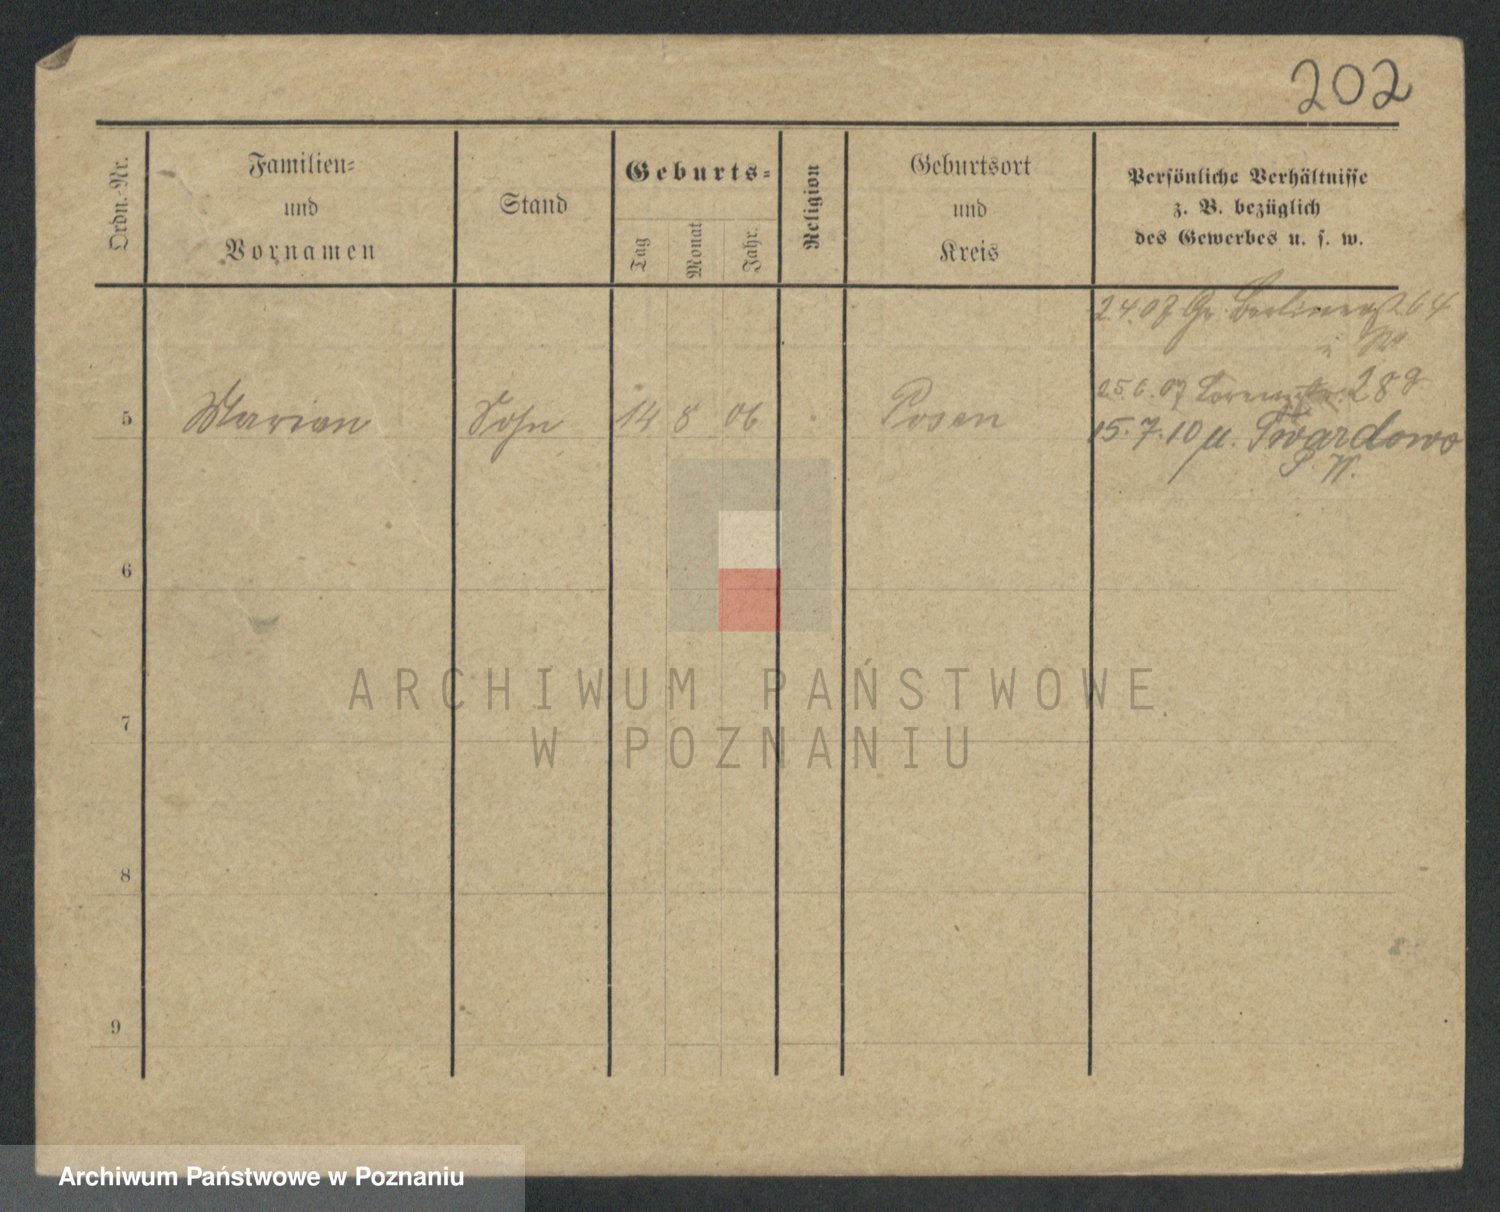 202
Ordn.-Nr.
Familien-
und
Vornamen
Stand
Geburts-
Tag
Monat
Jahr.
Religion
Geburtsort
und
Kreis
Persönliche Verhältnisse
z. B. bezüglich
des Gewerbes u. s. w.
2.4.07 Gr. Berlinerst. 64
5 Marian Sohn 14 8 06 Posen
25.6.07 28
15.7.10 Twardowo
6
7
8
9
ARCHIWUM PAŃSTWOWE
W POZNANIU
Archiwum Państwowe w Poznaniu